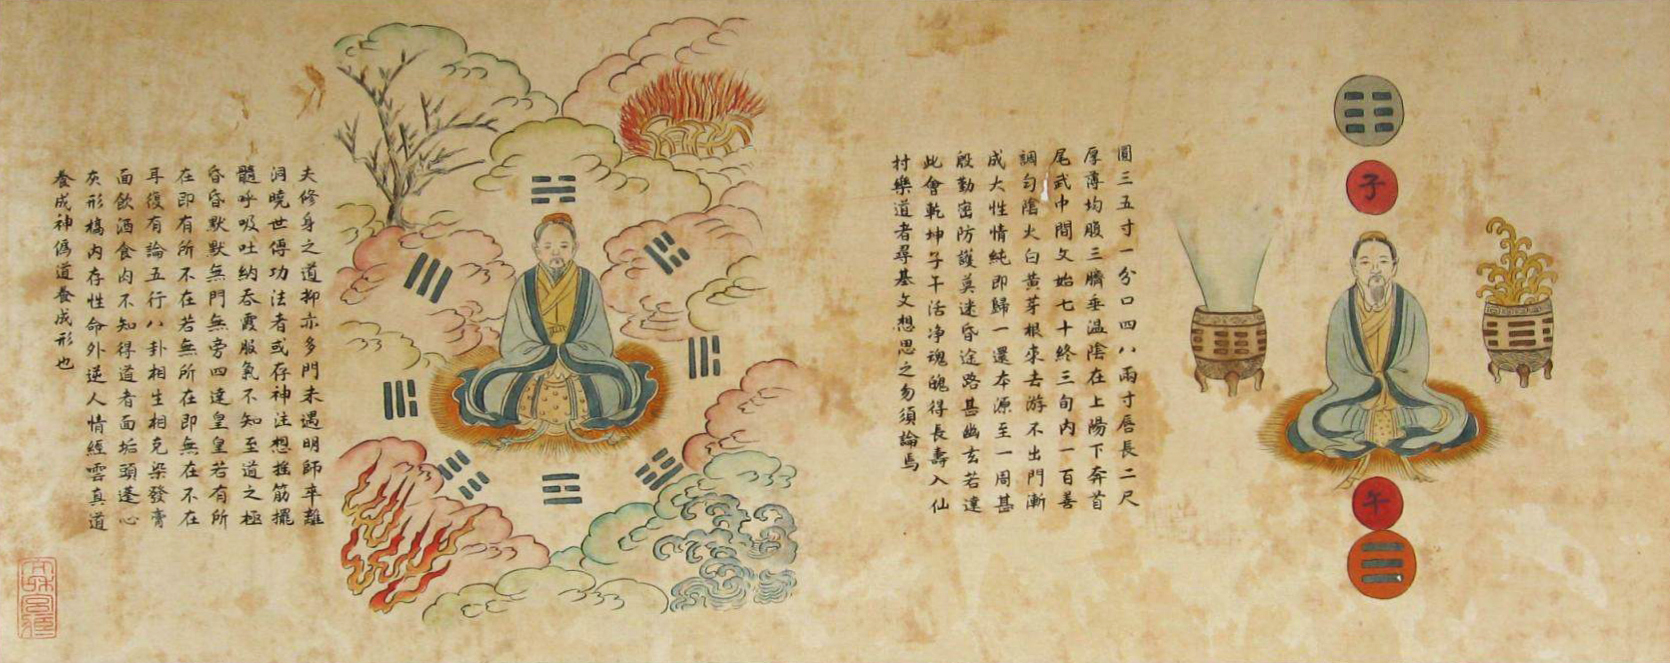 子
午
圓三五寸一分口四八兩寸唇長二尺
厚薄均腹三臍垂温陰在上陽下奔首
尾武中間文始七十終三旬內一百善
調勻陰火白黄芽根來去游不出門漸
成大性情純即歸一還本源至一周甚
殷勤密防護莫迷昏途路甚幽玄若達
此會乾坤子午活净魂魄得長壽入仙
村樂道者尋基文想思之勿須論焉
夫修身之道抑亦多門未遇明師卒離
洞曉世傳功法者或存神注想搖筋擺
髓呼吸吐納吞霞服氣不知至道之極
昏昏默默無門無旁四達皇皇若有所
在即有所不在若無所在即無在不在
耳復有論五行八卦相生相克染發膏
面飲酒食肉不知得道者面垢頭蓬心
灰形槁內存性命外逆人情經雲真道
養成神僞道養成形也